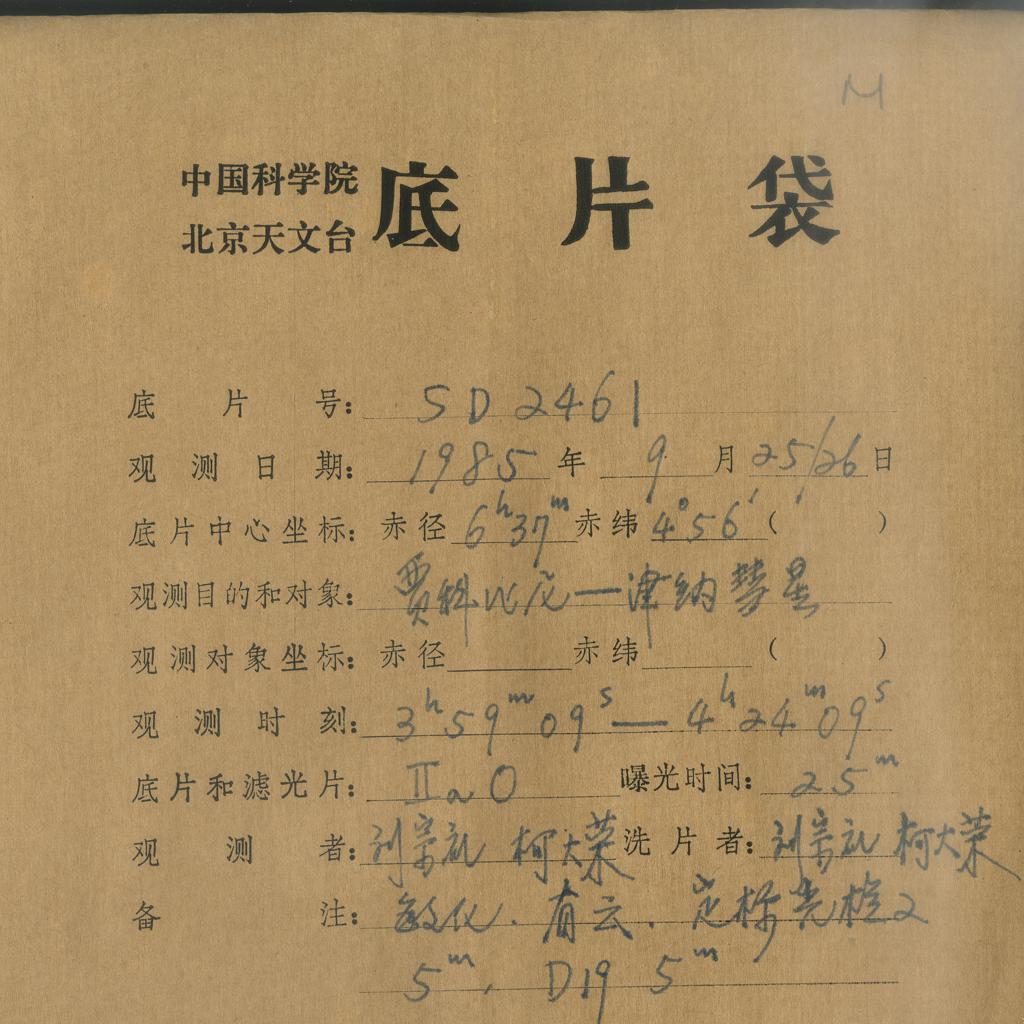 M
中国科学院
北京天文台
底片袋
底片号: SD2461
观测日期: 1985年 9月25/26日
底片中心坐标: 赤径 6h37m 赤纬 4°56′ ( ′ )
观测目的和对象: 贾科比尼—津纳彗星
观测对象坐标: 赤径 赤纬 ( )
观测时刻: 3h59m09s — 4h24m09s
底片和滤光片: IIaO 曝光时间: 25m
观测者: 刘宗礼 柯大荣 洗片者: 刘宗礼 柯大荣
备注: 敏化. 有云. 定标光楔2
5m, D19 5m